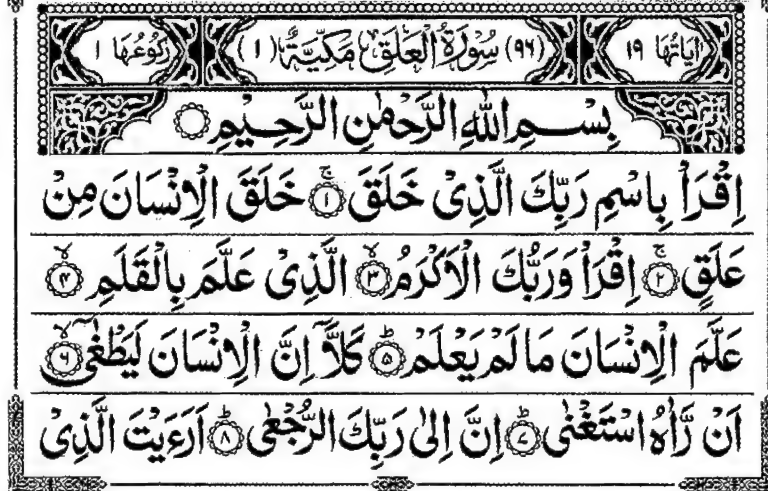 اٰيَاتُهَا ١٩ (٩٦) سُوْرَةُ الْعَلَقِ مَكِّيَّةٌ (١) رُكُوْعُهَا ١
بِسْمِ اللّٰهِ الرَّحْمٰنِ الرَّحِيْمِ
اِقْرَاْ بِاسْمِ رَبِّكَ الَّذِیْ خَلَقَ ۚ﴿١﴾ خَلَقَ الْاِنْسَانَ مِنْ
عَلَقٍ ۚ﴿٢﴾ اِقْرَاْ وَرَبُّكَ الْاَكْرَمُ ۙ﴿٣﴾ الَّذِیْ عَلَّمَ بِالْقَلَمِ ۙ﴿٤﴾
عَلَّمَ الْاِنْسَانَ مَا لَمْ يَعْلَمْ ؕ﴿٥﴾ كَلَّاۤ اِنَّ الْاِنْسَانَ لَيَطْغٰۤی ۙ﴿٦﴾
اَنْ رَّاٰهُ اسْتَغْنٰی ؕ﴿٧﴾ اِنَّ اِلٰی رَبِّكَ الرُّجْعٰی ؕ﴿٨﴾ اَرَءَيْتَ الَّذِیْ